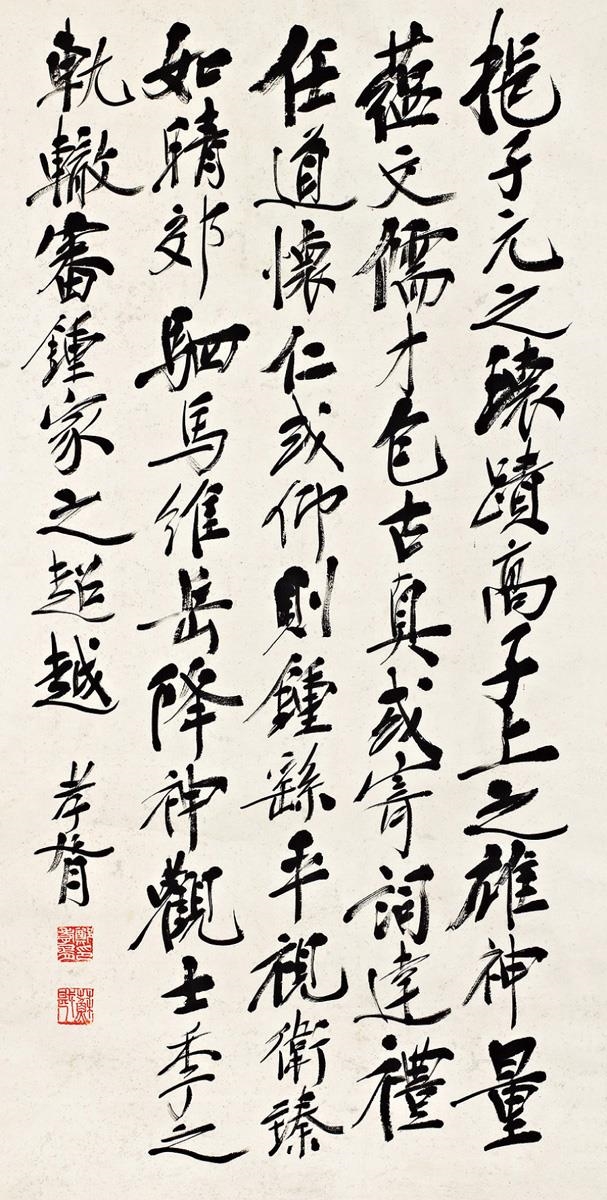 挹子元之瓌蹟高子上之雄神量
蕰文儒才包古真或寄詞達禮
任道懷仁或仰則鍾繇平視衛臻
如晴郊駟馬維岳降神觀士季之
軌轍審鍾家之超越
孝胥